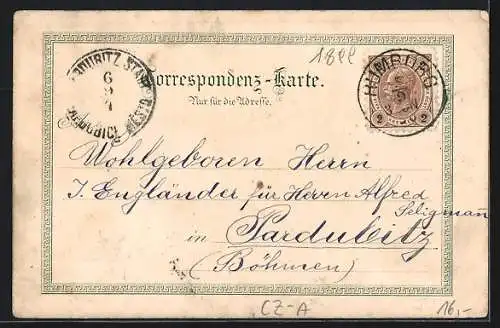 1899
RUMBURG
2 2
PARDUBITZ STADT
6
9
PARDUBICE MĚSTO
Correspondenz-Karte.
Nur für die Adresse.
Wohlgeboren Herrn
J. Engländer für Herrn Alfred
Seligmann
in Pardubitz
(Böhmen)
CZ-A
16,-